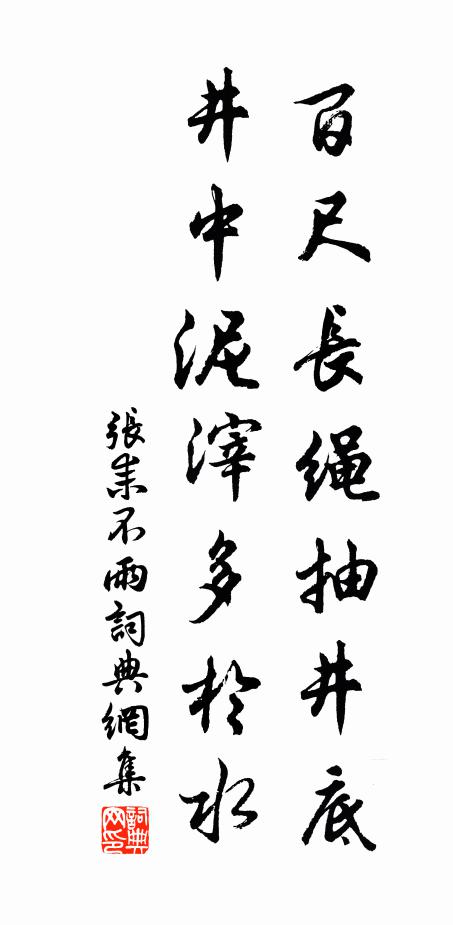 百尺長绳抽井底
井中泥滓多於水
張耒不雨詞典網集
詞典网印